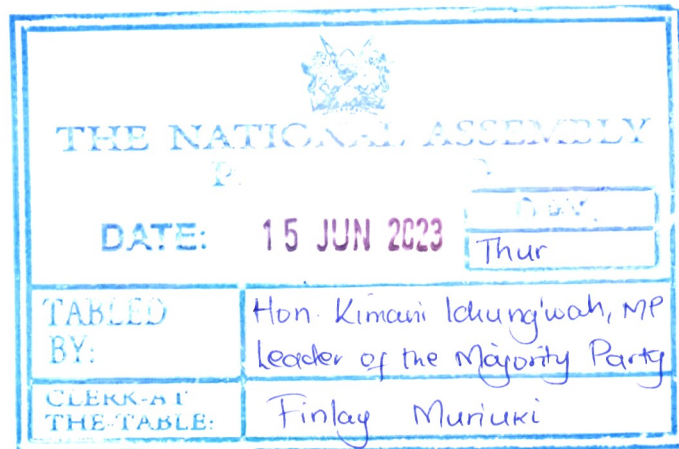 THE NATIONAL ASSEMBLY
DATE: 15 JUN 2023
DAY
Thur
TABLED BY:
Hon. Kimani Ichung'wah, MP
Leader of the Majority Party
CLERK-AT THE-TABLE:
Finlay Muriuki